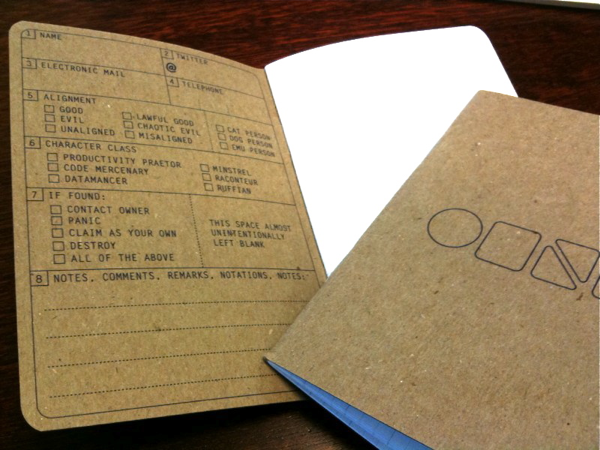 1 NAME
2 TWITTER
@
3 ELECTRONIC MAIL
4 TELEPHONE
5 ALIGNMENT
GOOD
EVIL
UNALIGNED
LAWFUL GOOD
CHAOTIC EVIL
MISALIGNED
CAT PERSON
DOG PERSON
EMU PERSON
6 CHARACTER CLASS
PRODUCTIVITY PRAETOR
CODE MERCENARY
DATAMANCER
MINSTREL
RACONTEUR
RUFFIAN
7 IF FOUND:
CONTACT OWNER
PANIC
CLAIM AS YOUR OWN
DESTROY
ALL OF THE ABOVE
THIS SPACE ALMOST
UNINTENTIONALLY
LEFT BLANK
8 NOTES, COMMENTS, REMARKS, NOTATIONS, NOTES: